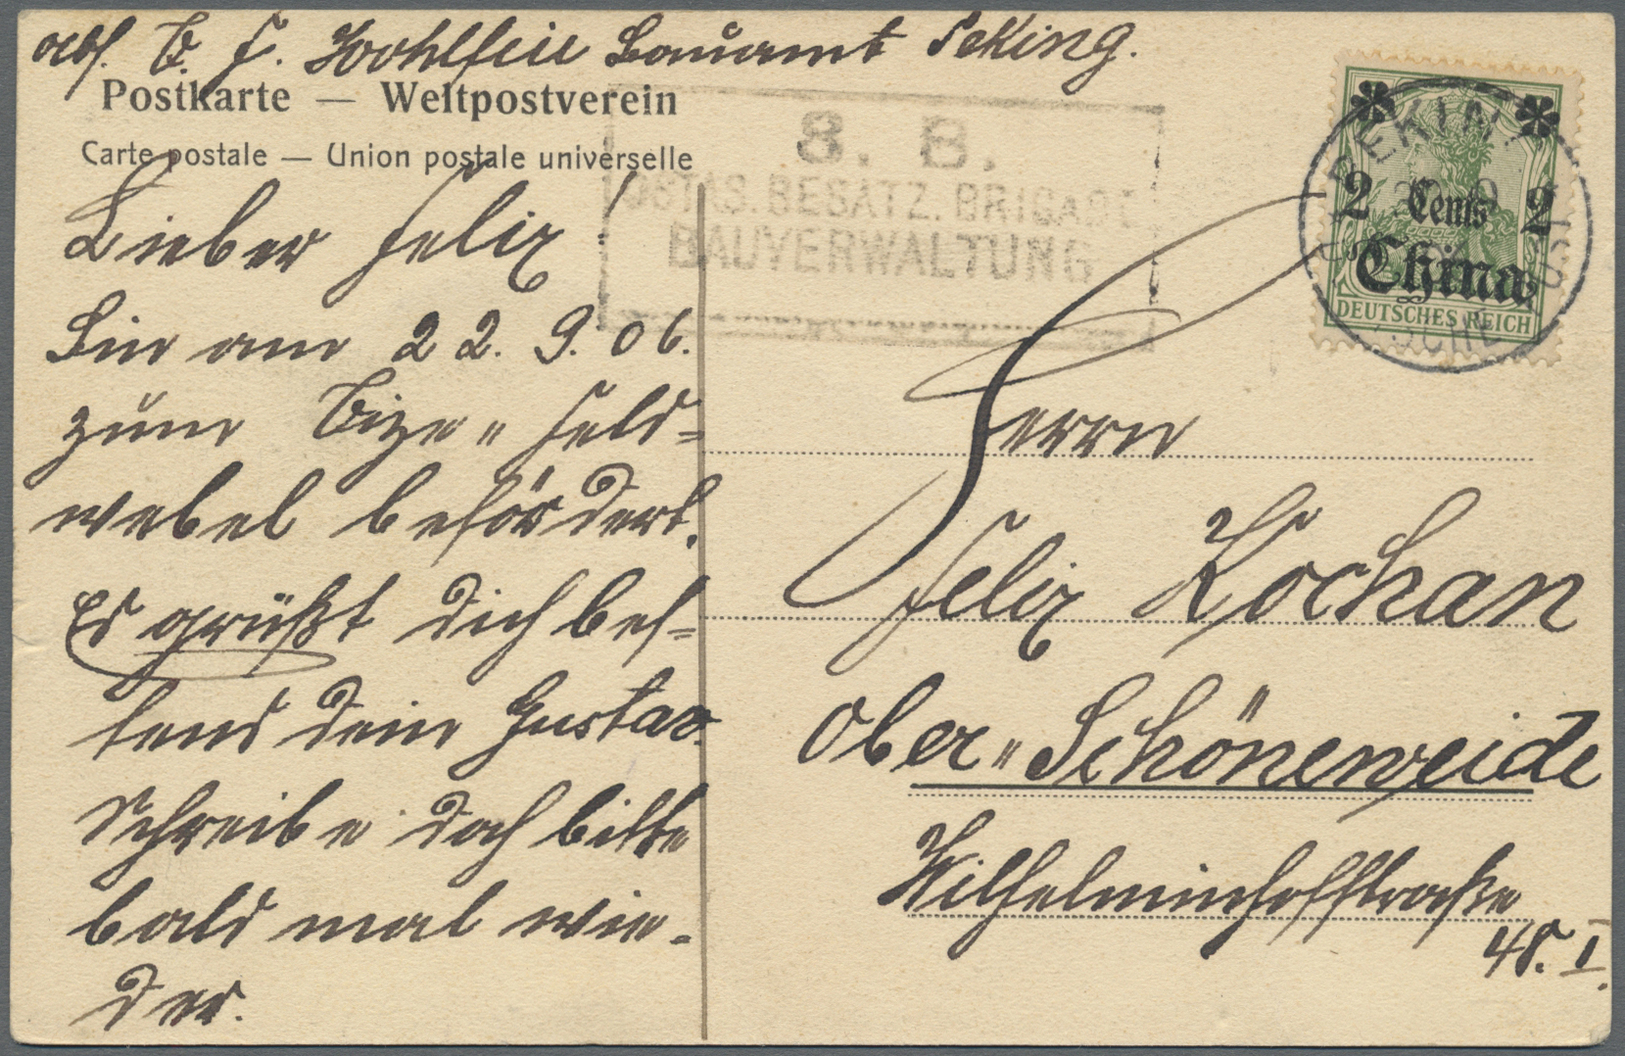 abs. V. F. Wohlfeil Bauamt Peking.
Postkarte — Weltpostverein
Carte postale — Union postale universelle
S. B.
OSTAS. BESATZ. BRIGADE
BAUVERWALTUNG
PEKING
2 Cents 2
China
DEUTSCHES REICH
Lieber Felix!
Bin am 22. 9. 06.
zum Vize „ Feld=
webel befördert.
Es grüßt dich bes=
tens dein Gustav.
Schreibe doch bitte
bald mal wie=
der.
Herrn
Felix Kochan
Ober „ Schöneweide
Wilhelminhofstraße
48. I.